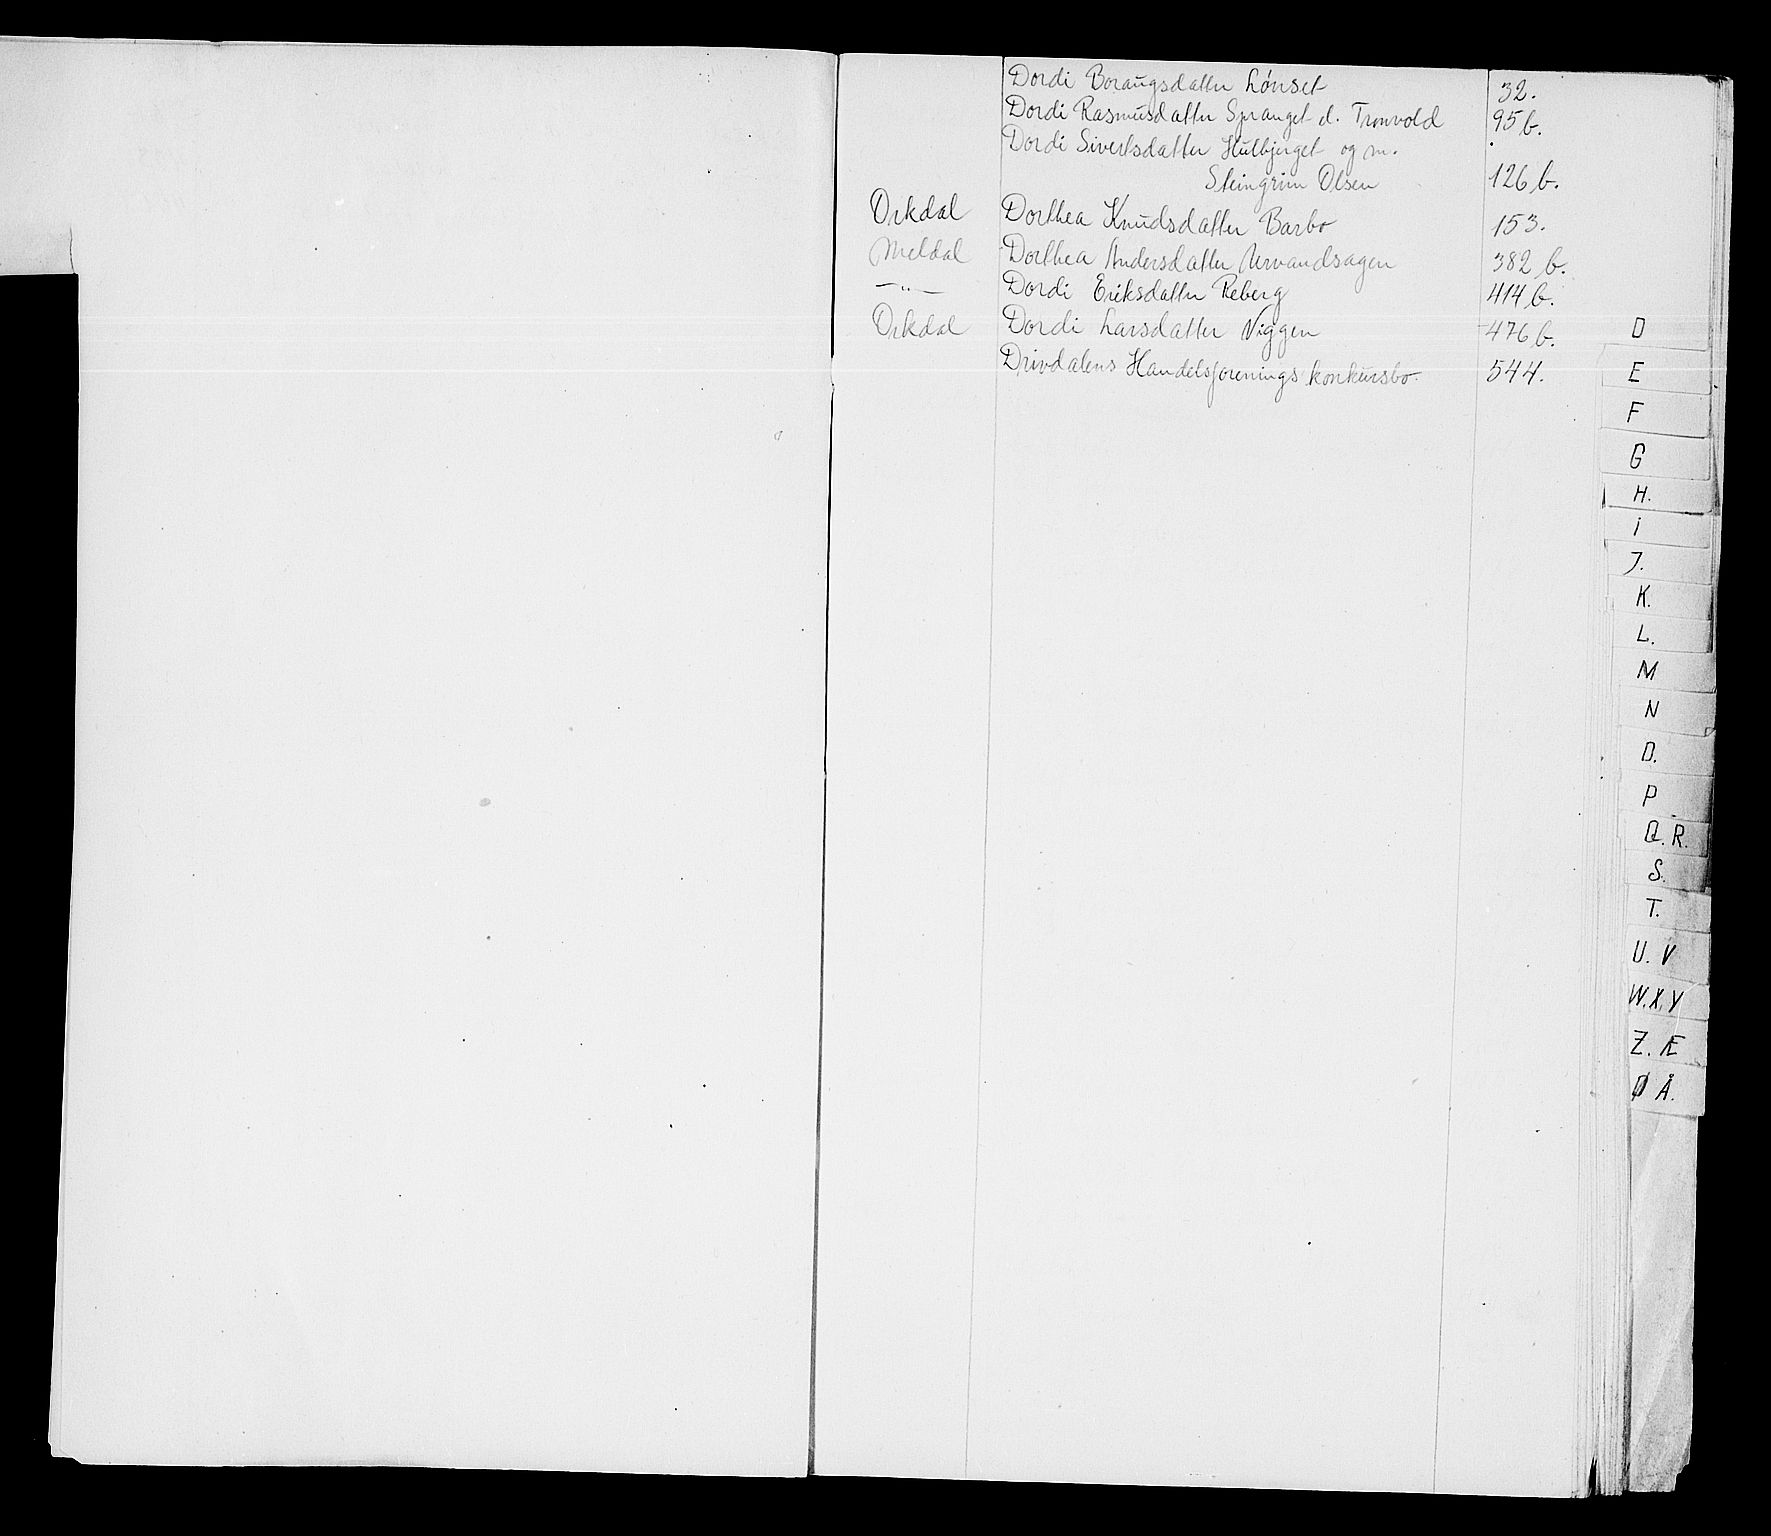 Dordi Boraugsdatter Lønset 32.
Dordi Rasmusdatter Spranget d. Tronvold 95 b.
Dordi Sivertsdatter Hulbjerget og m.
Steingrim Olsen 126 b.
Orkdal Dorthea Knudsdatter Barbo 153.
Meldal Dorthea Andersdatter 382 b.
—〃— Dordi Eriksdatter Reberg 414 b.
Orkdal Dordi Larsdatter Viggen 476 b.
Drivdalens Handelsforenings konkursbo. 544.
D
E
F
G
H.
I
J.
K.
L.
M
N
O.
P
Q. R.
S.
T.
U. V
W. X. Y
Z. Æ
Ø Å.